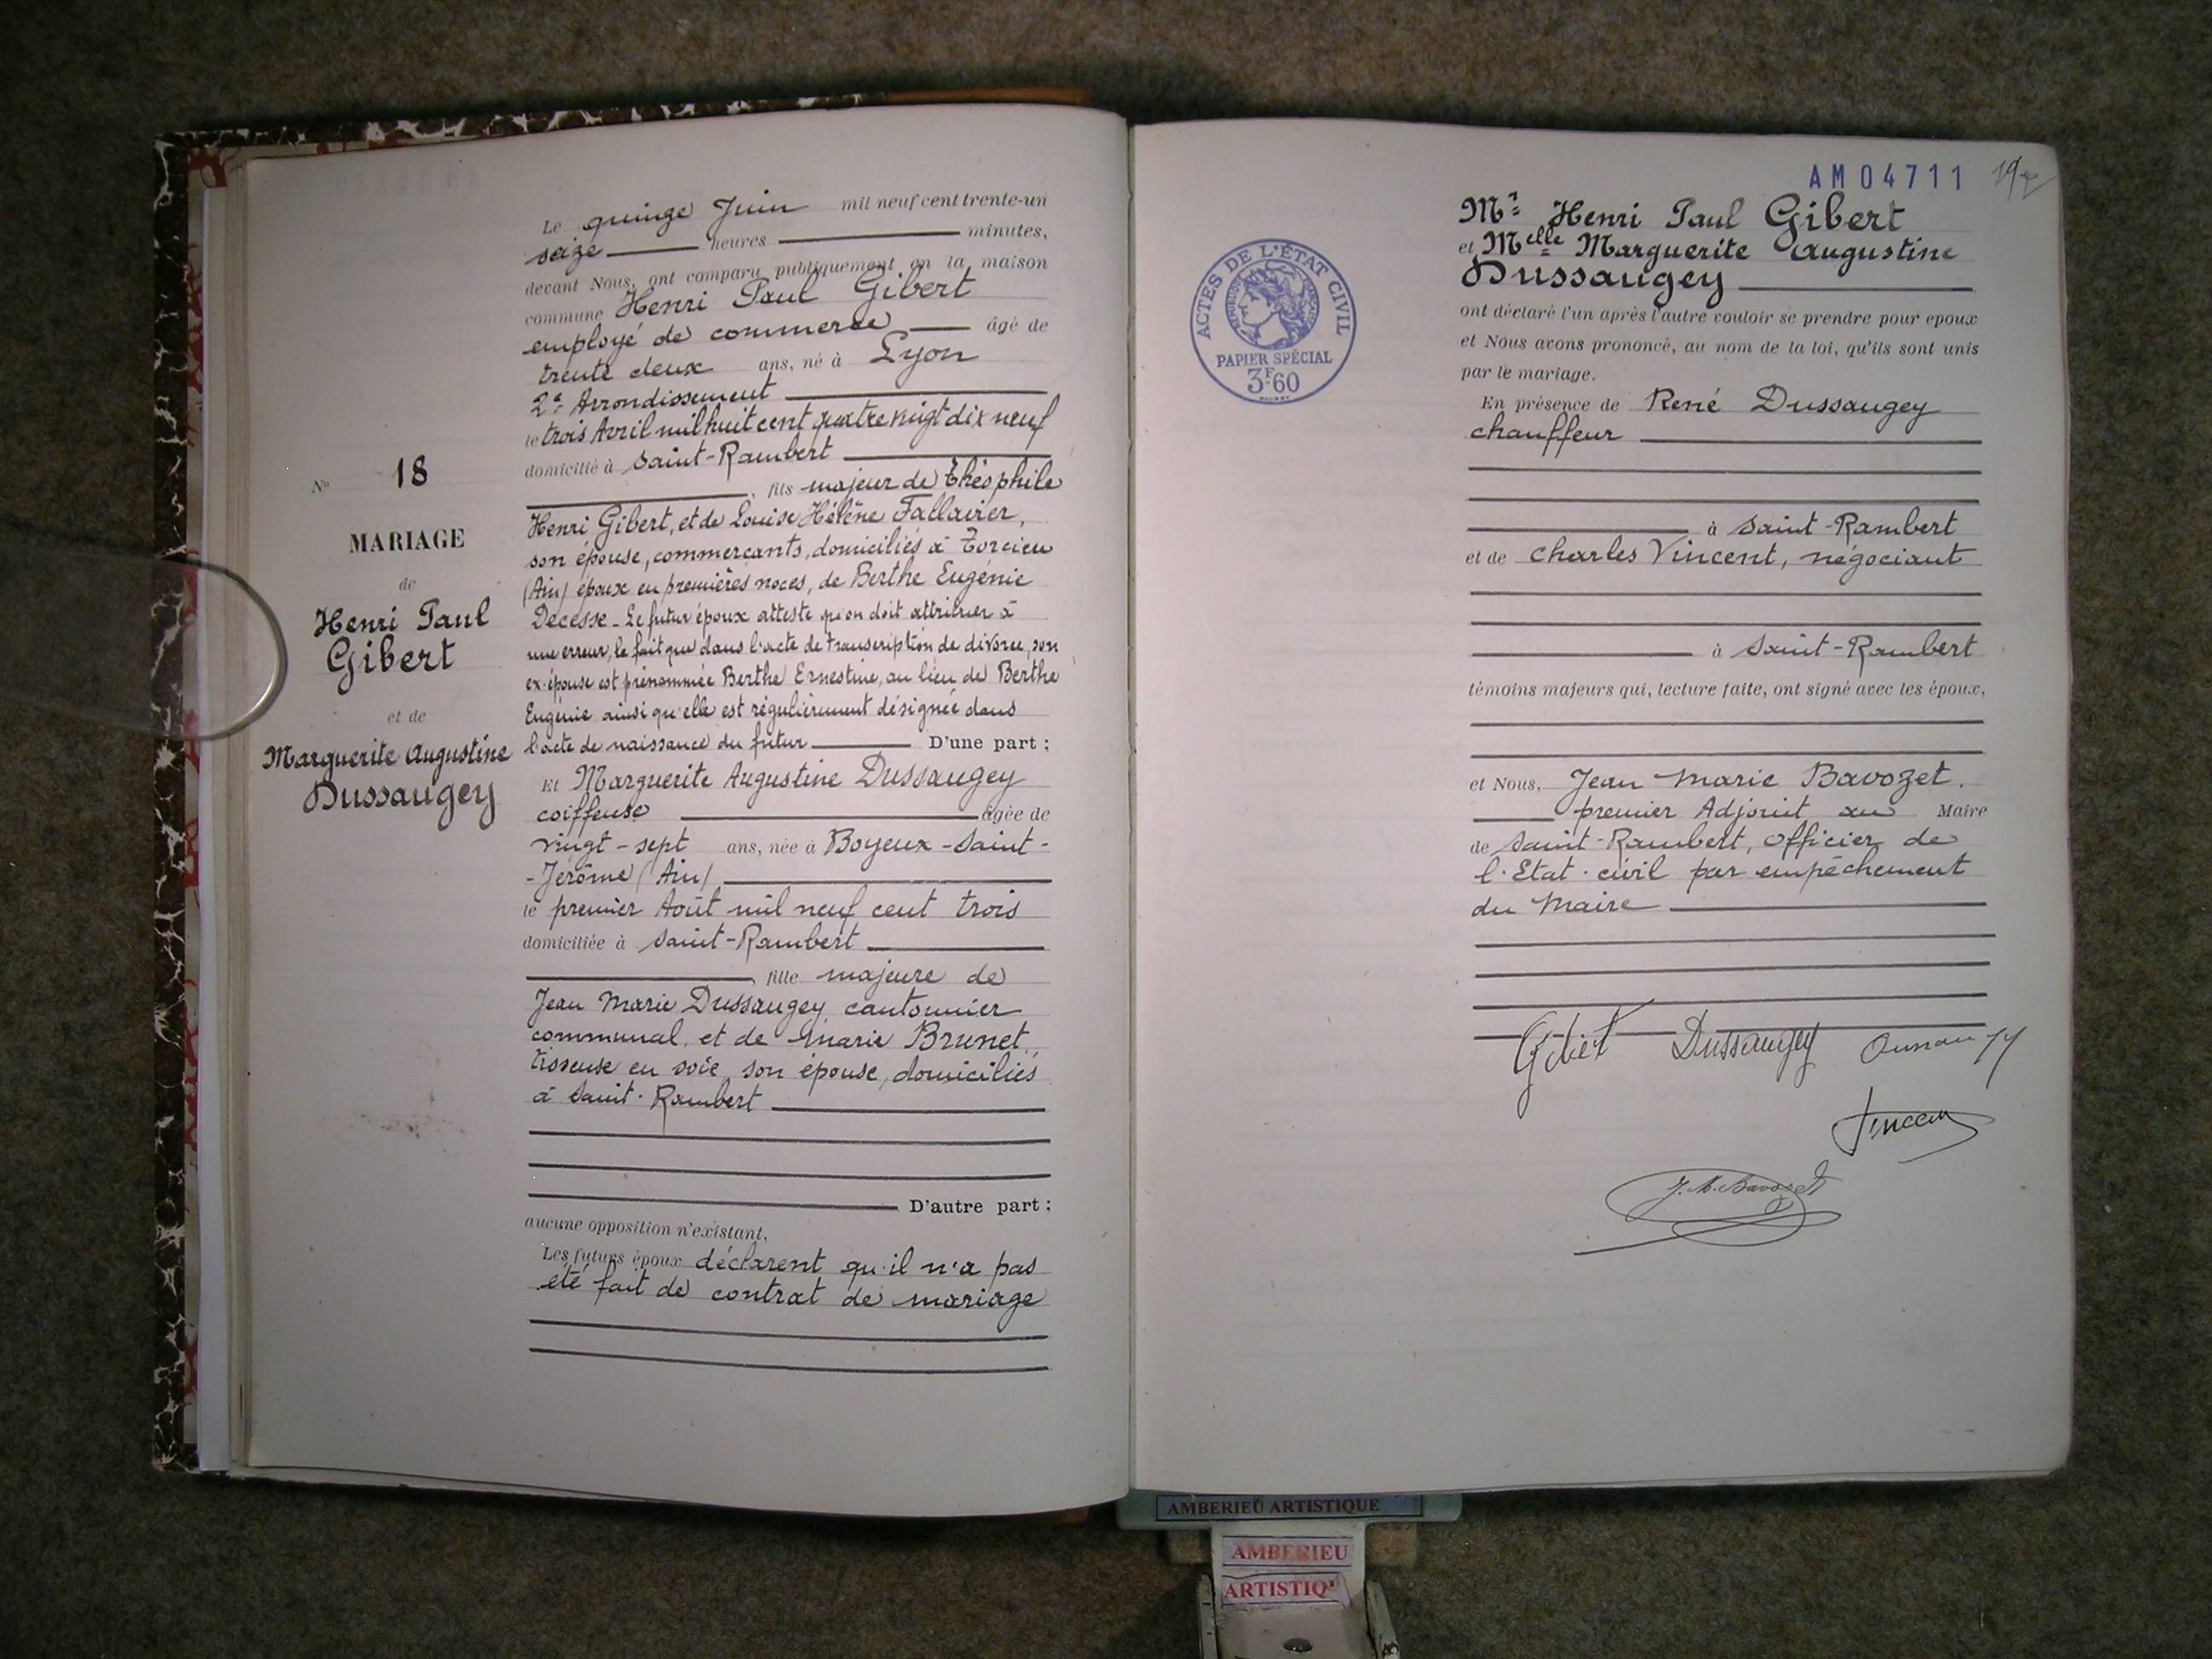 N° 18
MARIAGE
de
Henri Paul
Gibert
et de
Marguerite Augustine
Dussaugey
Le quinze Juin mil neuf cent trente-un
seize heures minutes,
devant Nous, ont comparu publiquement en la maison
commune Henri Paul Gibert
employé de commerce âgé de
trente deux ans, né à Lyon
2e Arrondissement
le trois Avril mil huit cent quatre vingt dix neuf
domicilié à Saint-Rambert
, fils majeur de Théophile
Henri Gibert, et de Louise Hélène Fallavier,
son épouse, commerçants, domiciliés à Torcieu
(Ain) époux en premières noces, de Berthe Eugénie
Decesse _ Le futur époux atteste qu'on doit attribuer à
une erreur, le fait que dans l'acte de transcription de divorce, son
ex-épouse est prénommée Berthe Ernestine, au lieu de Berthe
Eugénie ainsi qu'elle est régulièrement désignée dans
l'acte de naissance du futur D'une part ;
Et Marguerite Augustine Dussaugey
coiffeuse âgée de
vingt-sept ans, née à Boyeux-Saint-
-Jérôme (Ain)
le premier Août mil neuf cent trois
domiciliée à Saint-Rambert
, fille majeure de
Jean Marie Dussaugey, cantonnier
communal, et de Marie Brunet,
tisseuse en soie, son épouse, domiciliés
à Saint-Rambert
D'autre part ;
aucune opposition n'existant,
Les futurs époux déclarent qu'il n'a pas
été fait de contrat de mariage
AM04711
ACTES DE L'ÉTAT CIVIL
RÉPUBLIQUE FRANÇAISE
PAPIER SPÉCIAL
3F60
Mr Henri Paul Gibert
et Melle Marguerite Augustine
Dussaugey
ont déclaré l'un après l'autre vouloir se prendre pour époux
et Nous avons prononcé, au nom de la loi, qu'ils sont unis
par le mariage.
En présence de René Dussaugey
chauffeur
à Saint-Rambert
et de Charles Vincent, négociant
à Saint-Rambert
témoins majeurs qui, lecture faite, ont signé avec les époux,
et Nous, Jean Marie Bavozet,
premier Adjoint au Maire
de Saint-Rambert, officier de
l'Etat-civil par empêchement
du Maire
Gibert Dussaugey
Vincent
J. M. Bavozet
AMBERIEU ARTISTIQUE
AMBERIEU
ARTISTIQ